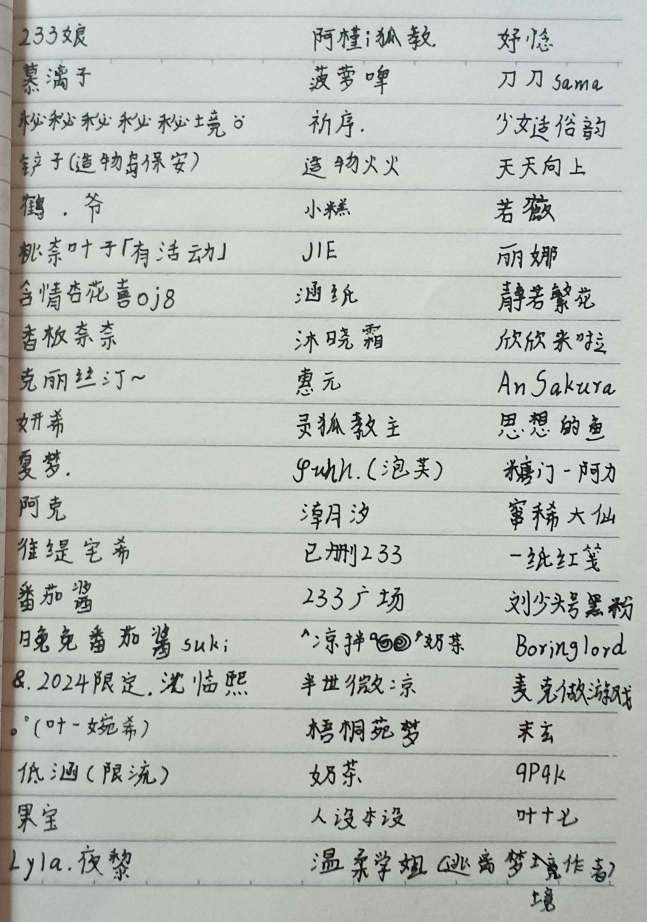 233娘 阿槿i狐教 妤惗
慕漓子 菠萝啤 刀刀sama
秘秘秘秘秘境。 祈序. 少女适俗韵
铲子(造物岛保安) 造物火火 天天向上
鹤.爷 小糕 若薇
桃奈叶子「有活动」 JIE 丽娜
含情杏花喜oj8 涵纸 静若繁花
香板奈奈 沐晓霜 欣欣来啦
克丽丝汀~ 惠元 AnSakura
妍希 灵狐教主 思想的鱼
夏梦. (泡芙) 糖门一阿力
阿克 淖月汐 窜稀大仙
维缇宅希 已删233 一纸红笺
番茄酱 233广场 刘少头号黑粉
晚兔番茄酱suki 凉拌 奶茶 Boringlord
&.2024限定.沈临熙 半世微凉 麦克做游戏
(叶一婉希) 梧桐苑梦 末玄
低涵(限流) 奶茶 9P9k
果宝 人没本设 叶十七
Lyla.夜黎 温柔学姐(逃离梦境作者)
境